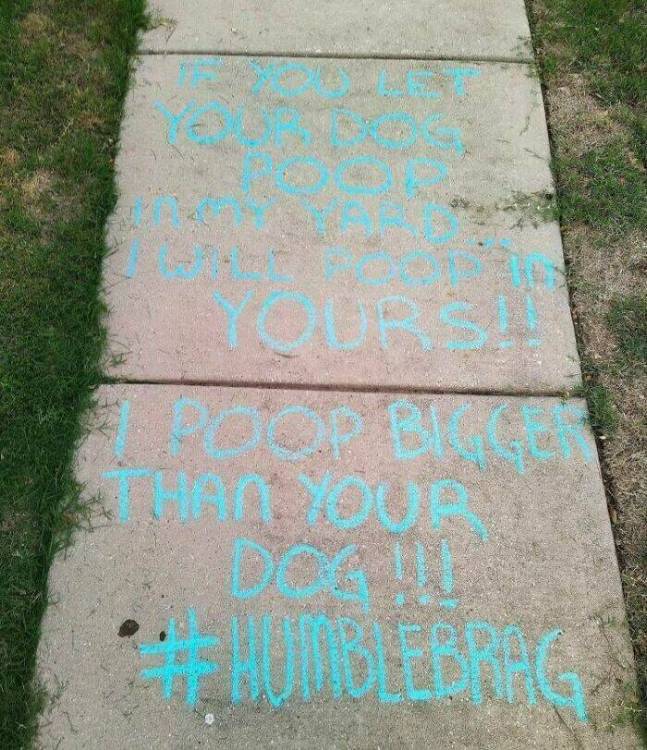 IF YOU LET
YOUR DOG
POOP
in mY YARD...
I WILL POOP in
YOURS!!
I POOP BIGGER
THAn YOUR
DOG!!!
#HUmBLEBRAG